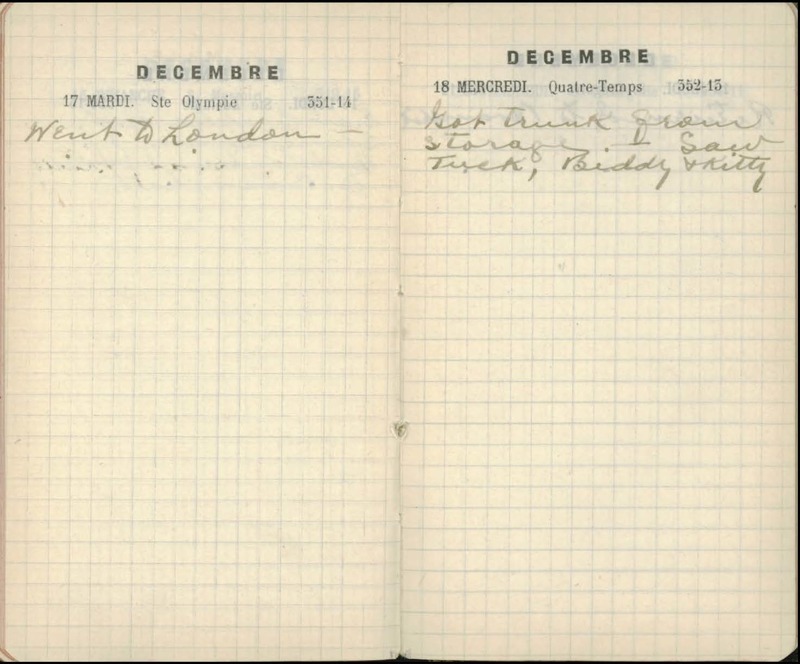 DECEMBRE
17 MARDI. Ste Olympie 351-14
Went to London –
DECEMBRE
18 MERCREDI. Quatre-Temps 352-13
Got trunk from
storage. – Saw
Tuck, Biddy & Kitty